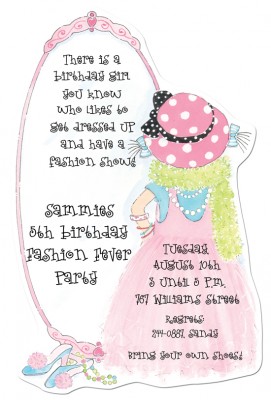 There is a
birthday girl
you know
who likes to
get dressed up
and have a
fashion show!
Sammies
5th birthday
Fashion Fever
Party
Tuesday
August 10th
3 Until 5 P.M.
767 Williams Street
Regrets
244-0887, Sandy
Bring your own shoes!